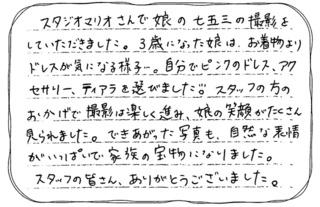 スタジオマリオさんで娘の七五三の撮影を
していただきました。3歳になった娘は、お着物より
ドレスが気になる様子…。自分でピンクのドレス、アク
セサリー、ティアラを選びました!! スタッフの方の
おかげで撮影は楽しく進み、娘の笑顔がたくさん
見られました。できあがった写真も、自然な表情
がいっぱいで家族の宝物になりました。
スタッフの皆さん、ありがとうございました。